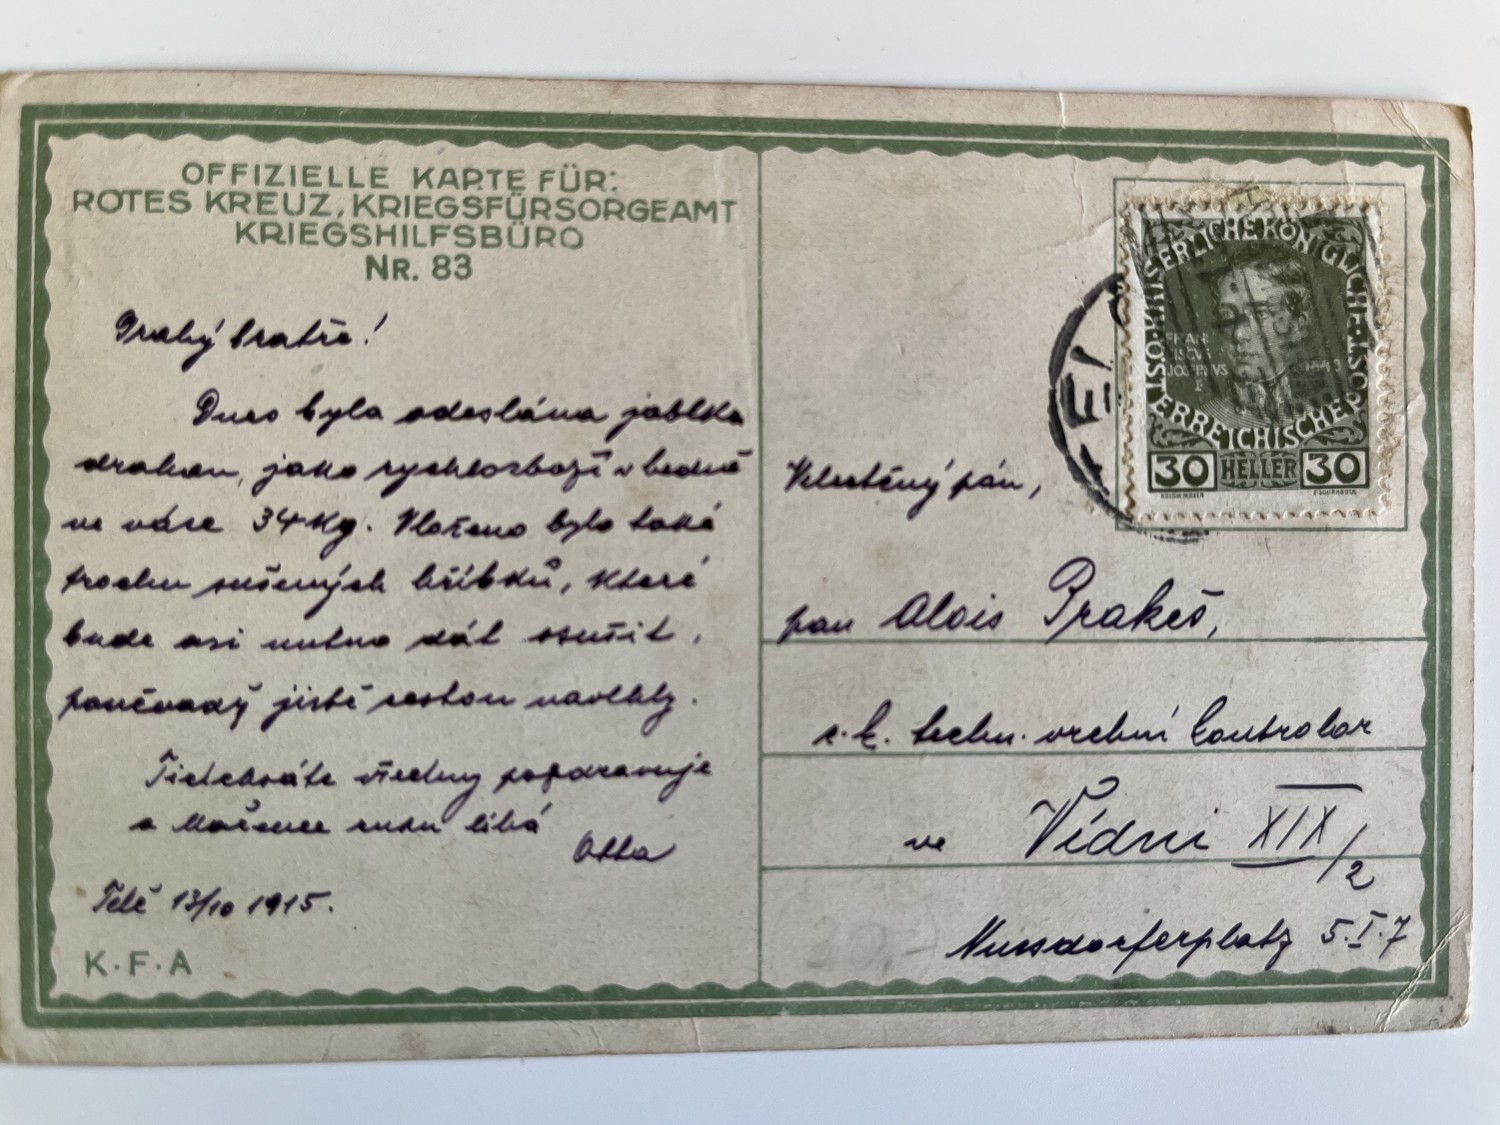 OFFIZIELLE KARTE FÜR:
ROTES KREUZ, KRIEGSFÜRSORGEAMT
KRIEGSHILFSBÜRO
NR. 83
Drahý bratře!
Dnes byla odeslána jablka
drahou, jako rychlozboží v bedně
ve váze 34 Kg. Vloženo bylo také
trochu sušených hříbků, které
bude asi nutno dát osušit,
poněvadž jistě cestou navlhly.
Tidebváte všechny pozdravuje
a Mařence ruku líbá
Otta
Telč 13/10 1915.
K.F.A
ÖST·KAISERLICHE KÖNIGLICHE·ERREICHISCHE POST·
FRAN
JOSEPHVS
I
30 HELLER 30
TELČ
Velectěný pán,
pan Alois Prakeš,
c. k. techn. vrchní kontrolor
ve Vídni XIX/2
Nussdorferplatz 5. I. 7